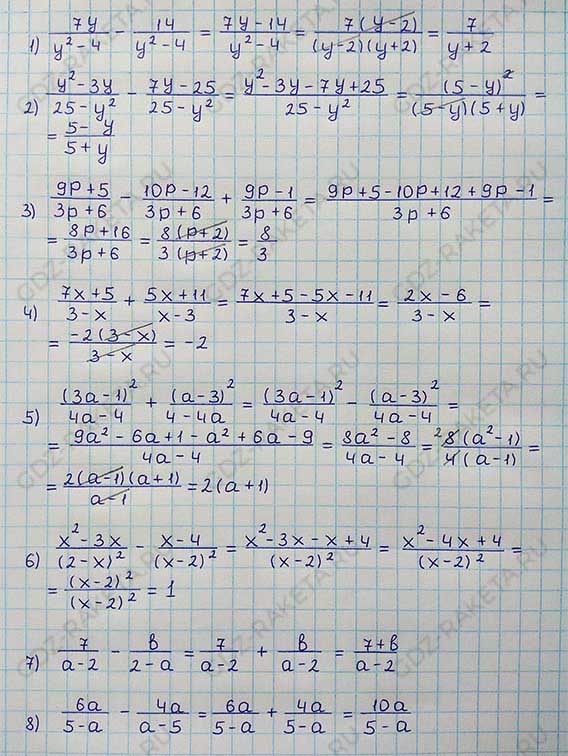 1) 7y/(y²-4) - 14/(y²-4) = (7y-14)/(y²-4) = 7(y-2)/((y-2)(y+2)) = 7/(y+2)
2) (y²-3y)/(25-y²) - (7y-25)/(25-y²) = (y²-3y-7y+25)/(25-y²) = (5-y)²/((5-y)(5+y)) =
= (5-y)/(5+y)
3) (9p+5)/(3p+6) - (10p-12)/(3p+6) + (9p-1)/(3p+6) = (9p+5-10p+12+9p-1)/(3p+6) =
= (8p+16)/(3p+6) = 8(p+2)/(3(p+2)) = 8/3
4) (7x+5)/(3-x) + (5x+11)/(x-3) = (7x+5-5x-11)/(3-x) = (2x-6)/(3-x) =
= -2(3-x)/(3-x) = -2
5) (3a-1)²/(4a-4) + (a-3)²/(4-4a) = (3a-1)²/(4a-4) - (a-3)²/(4a-4) =
= (9a²-6a+1-a²+6a-9)/(4a-4) = (8a²-8)/(4a-4) = ²8(a²-1)/(4(a-1)) =
= 2(a-1)(a+1)/(a-1) = 2(a+1)
6) (x²-3x)/(2-x)² - (x-4)/(x-2)² = (x²-3x-x+4)/(x-2)² = (x²-4x+4)/(x-2)² =
= (x-2)²/(x-2)² = 1
7) 7/(a-2) - b/(2-a) = 7/(a-2) + b/(a-2) = (7+b)/(a-2)
8) 6a/(5-a) - 4a/(a-5) = 6a/(5-a) + 4a/(5-a) = 10a/(5-a)
GDZ-RAKETA.RU